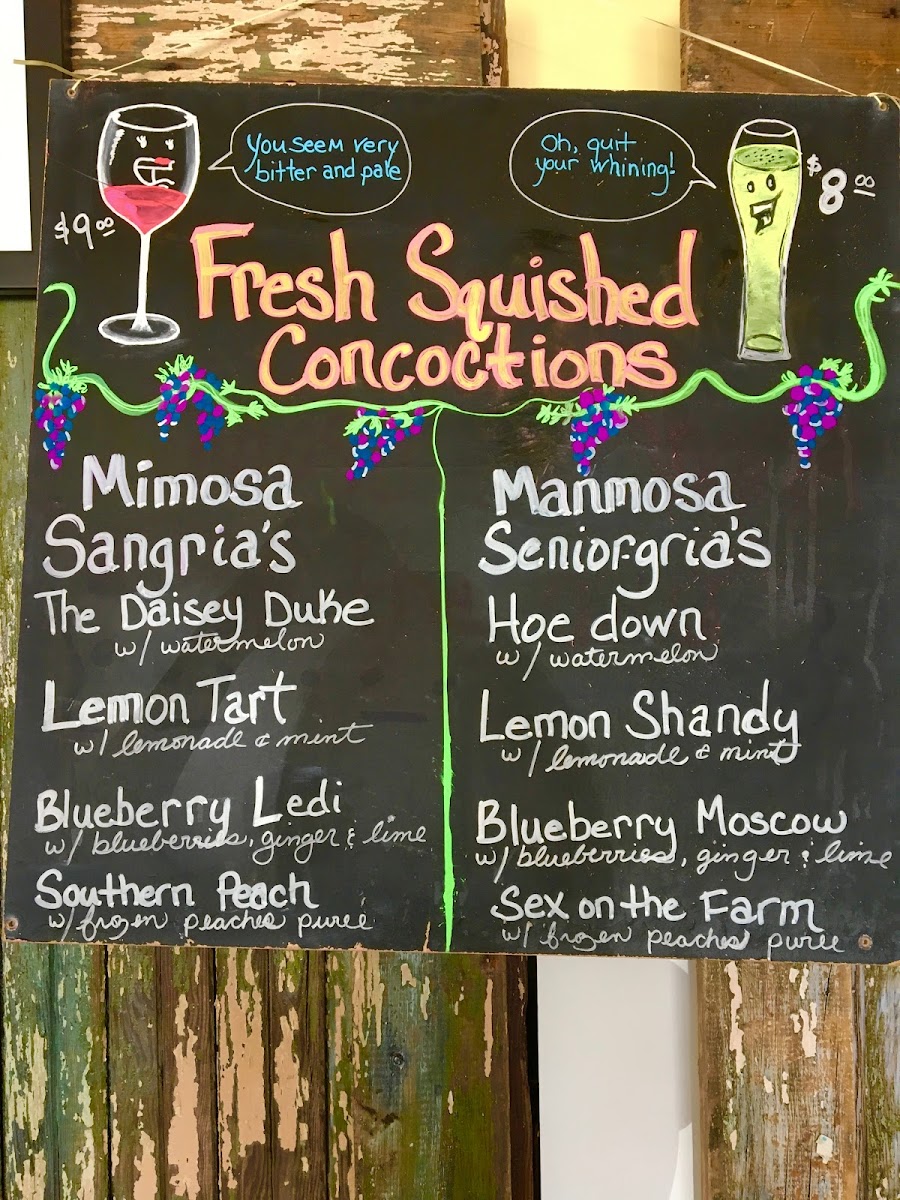 You seem very
bitter and pale
Oh, quit
your whining!
$9.00
$8.00
Fresh Squished
Concoctions
Mimosa
Sangria's
The Daisey Duke
w/ watermelon
Lemon Tart
w/ lemonade & mint
Blueberry Ledi
w/ blueberries, ginger & lime
Southern Peach
w/ frozen peaches puree
Manmosa
Seniorgria's
Hoe down
w/ watermelon
Lemon Shandy
w/ lemonade & mint
Blueberry Moscow
w/ blueberries, ginger & lime
Sex on the Farm
w/ frozen peaches puree